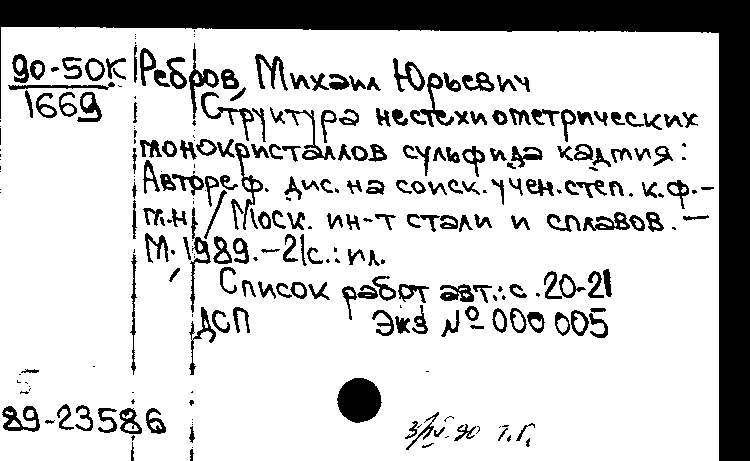 90-50К Ребров, Михаил Юрьевич
1669 Структура нестехиометрических
монокристаллов сульфида кадмия:
Автореф. дис. на соиск. учен. степ. к. ф.-
м.н. / Моск. ин-т стали и сплавов. —
М., 1989. - 21с.: ил.
Список работ авт.: с. 20-21
ДСП Экз № 000 005
89-23586